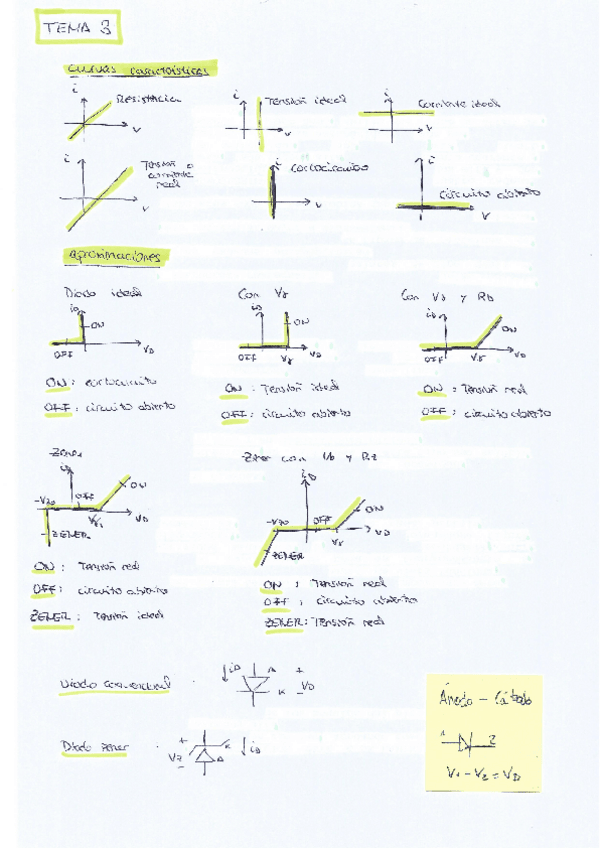 TEMA 3
Curvas características
i Resistencia V
i Tensión ideal V
i Corriente ideal V
i Tensión o corriente real V
i Cortocircuito V
i Circuito abierto V
Aproximaciones
Diodo ideal
iD ON OFF VD
ON: cortocircuito
OFF: circuito abierto
Con Vγ
iD ON OFF Vγ VD
ON: Tensión ideal
OFF: circuito abierto
Con Vγ y RD
iD ON OFF Vγ VD
ON: Tensión real
OFF: circuito abierto
Zener
iD ON OFF -Vzo Vγ VD ZENER
ON: Tensión real
OFF: circuito abierto
ZENER: Tensión ideal
Zener con Vb y Rz
iD ON OFF -Vzo Vγ VD ZENER
ON: Tensión real
OFF: circuito abierto
ZENER: Tensión real
Diodo convencional
iD A K + VD -
Diodo zener
+ Vz - K A iD
Ánodo - Cátodo
1 2
V1 - V2 = VD